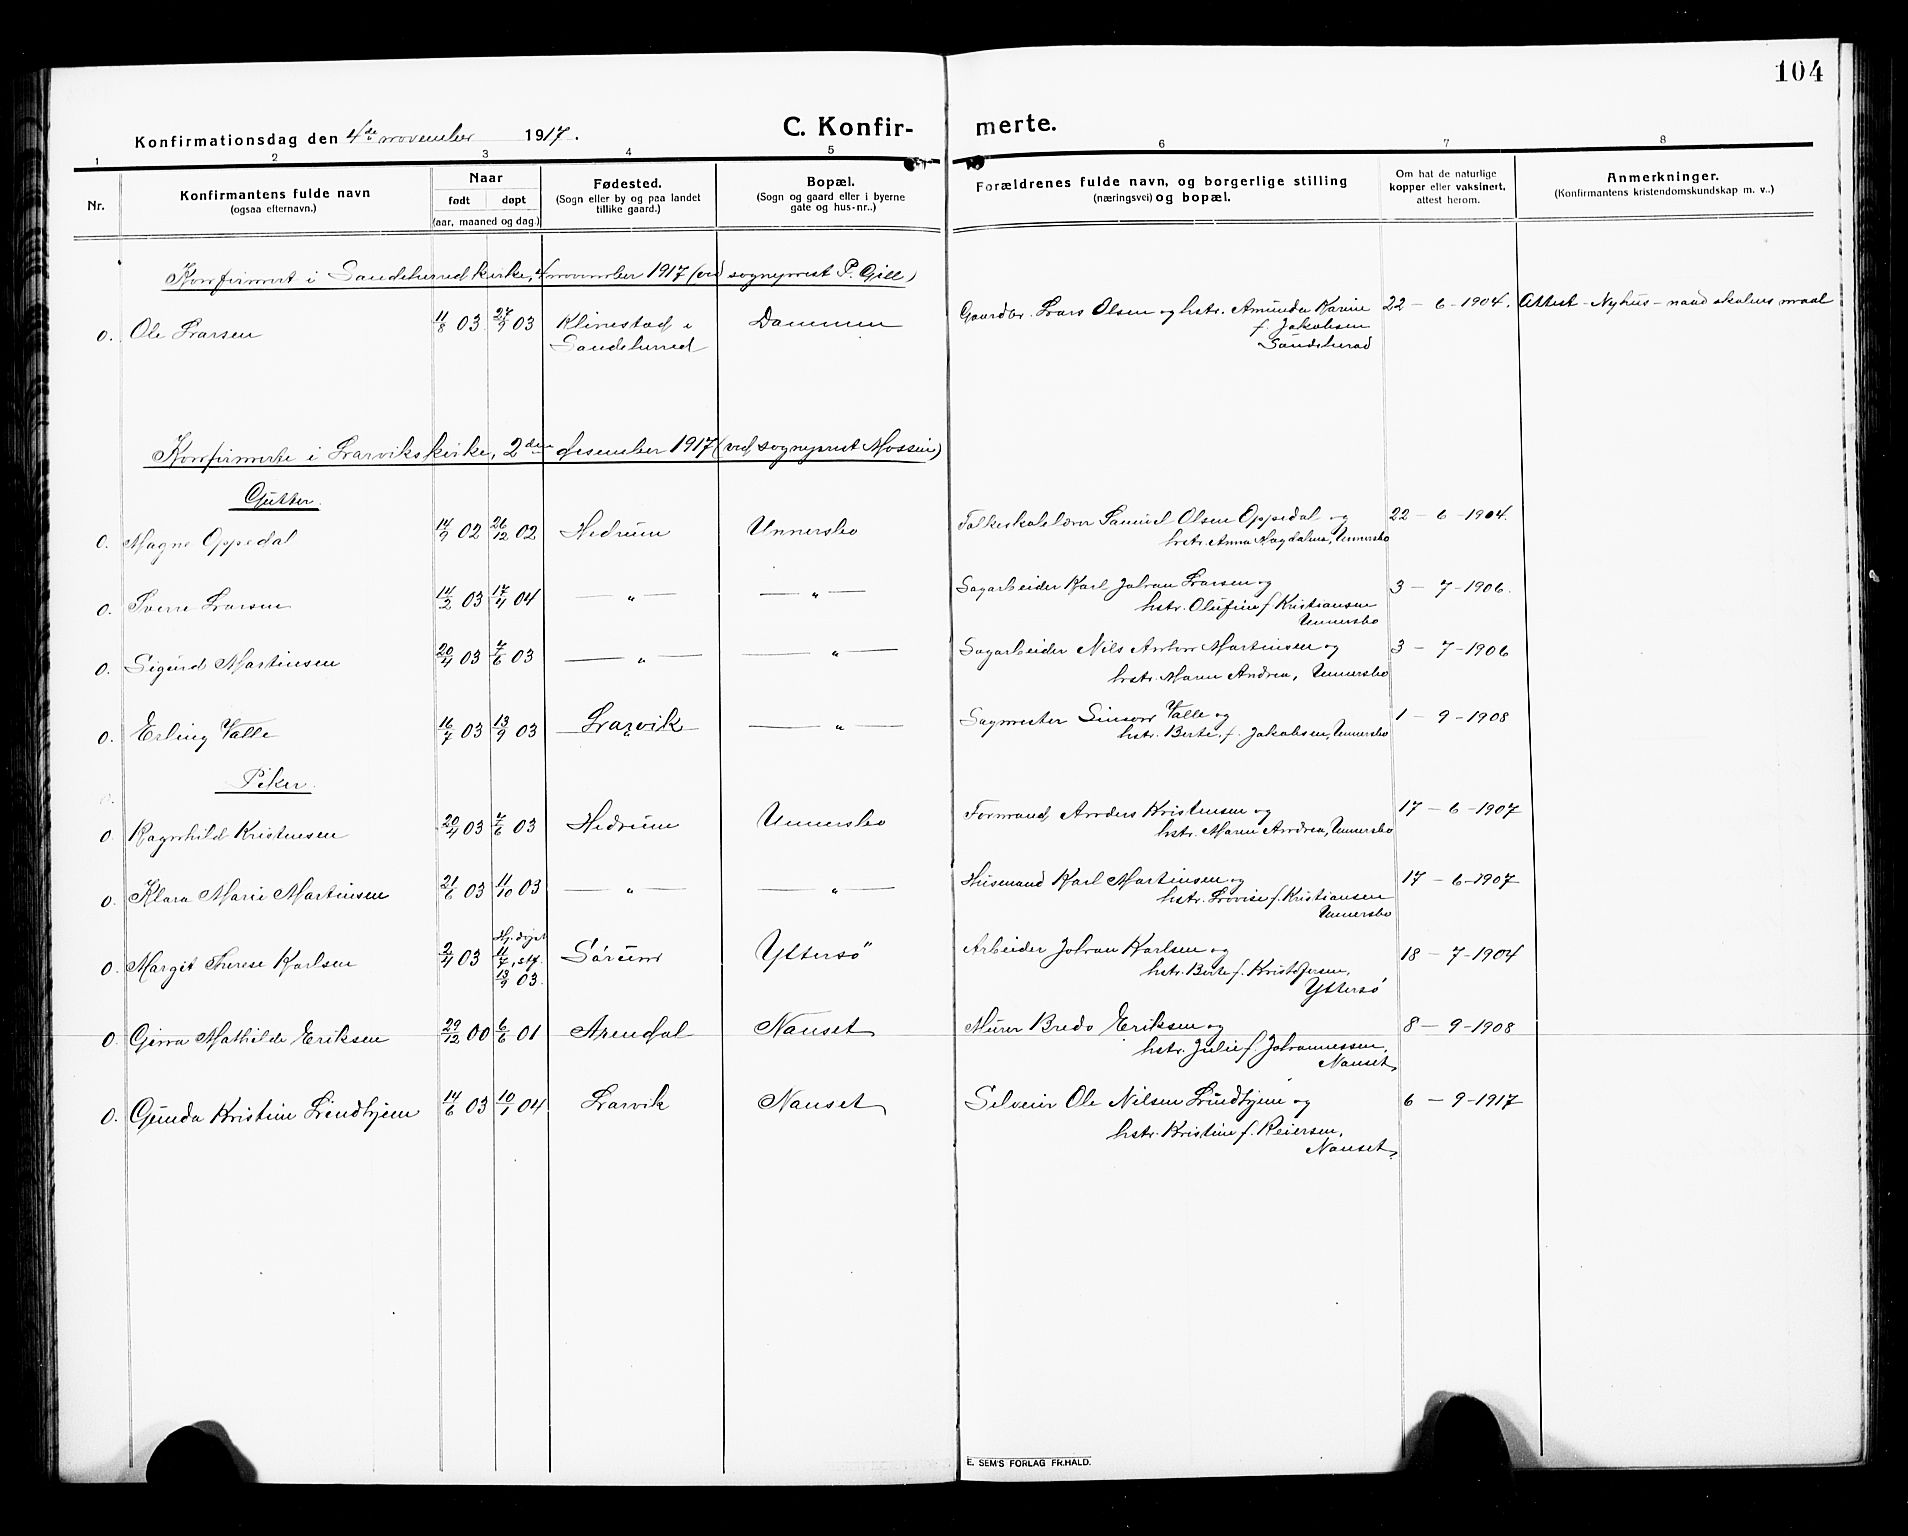 104
Konfirmationsdag den 4de november 1917.
C. Konfir-
merte.
1 2 3 4 5 6 7 8
Nr.
Konfirmantens fulde navn
(ogsaa efternavn.)
Naar
født døpt
(aar, maaned og dag.)
Fødested.
(Sogn eller by og paa landet
tillike gaard.)
Bopæl.
(Sogn og gaard eller i byerne
gate og hus-nr..)
Forældrenes fulde navn, og borgerlige stilling
(næringsvei) og bopæl.
Om hat de naturlige
kopper eller vaksinert,
attest herom.
Anmerkninger.
(Konfirmantens kristendomskundskap m. v..)
Konfirmert i Sandeherred kirke, 4 november 1917 (ved sogneprest P. Gill)
0. Ole Larsen 11/8 03 27/9 03 Klinestad i Dammen Gaardbr. Lars Olsen og hstr. Amunda Karine 22 - 6 - 1904. Attest - Nyhus - naad skolens maal
Sandeherred f. Jakobsen
Sandeherad
Konfirmerte i Larvikskirke, 2den desember 1917 (ved sogneprest Mossin)
Gutter.
0. Magne Oppedal 14/9 02 26/12 02 Hedrum Unnersbo Folkeskolelærer Samuel Olsen Oppedal og 22 - 6 - 1904.
hstr. Anna Magdalena, Unnersbo
0. Sverre Larsen 14/2 03 17/4 04 — „ — — „ — Sagarbeider Karl Johan Larsen og 3 - 7 - 1906.
hstr. Olufine f. Kristiansen
Unnersbo
0. Sigurd Martinsen 20/4 03 7/6 03 — „ — — „ — Sagarbeider Nils Anton Martinsen og 3 - 7 - 1906
hstr. Maren Andrea, Unnersbo
0. Erling Valle 16/7 03 13/9 03 Larvik — „ — Sagmester Simon Valle og 1 - 9 - 1908
hstr. Berte, f. Jakobsen, Unnersbo
Piker.
0. Ragnhild Kristensen 20/4 03 7/6 03 Hedrum Unnersbo Formand Anders Kristensen og 17 - 6 - 1907
hstr. Maren Andrea, Unnersbo
0. Klara Marie Martinsen 21/6 03 11/10 03 — „ — — „ — Husmand Karl Martinsen og 17 - 6 - 1907
hstr. Lovise f. Kristiansen
Unnersbo
0. Margit Therese Karlsen 2/4 03 Hj. døpt 11/7, stf. 13/9 03. Sørum Yttersö Arbeider Johan Karlsen og 18 - 7 - 1904
hstr. Berte f. Kristofersen,
Yttersö
0. Ginra Mathilde Eriksen 29/12 00 6/6 01 Arendal Nanset Murer Bredo Eriksen og 8 - 9 - 1908
hstr. Julie f. Johannessen,
Nanset,
0. Gunda Kristine Lindhjem 14/6 03 10/1 04 Larvik Nanset Selveier Ole Nilsen Lindhjem og 6 - 9 - 1917
hstr. Kristine f. Reiersen,
Nanset,
E. SEM'S FORLAG FR.HALD.